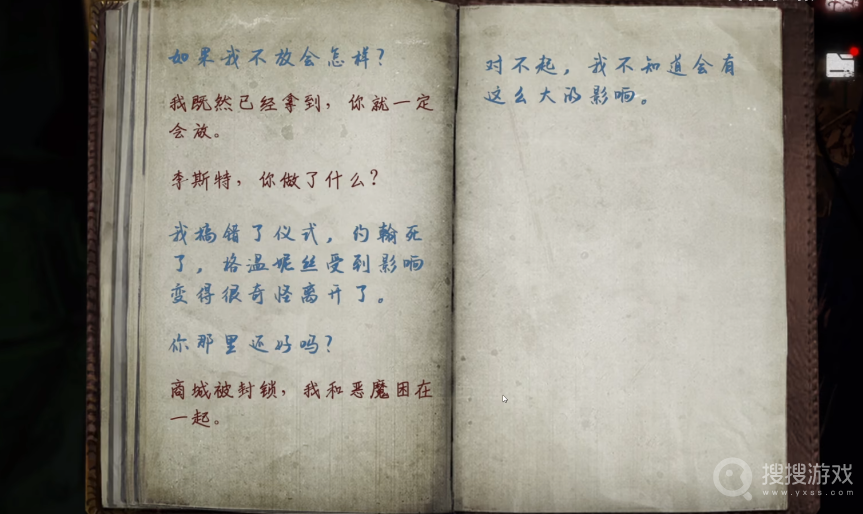 如果我不放会怎样？
我既然已经拿到，你就一定
会放。
李斯特，你做了什么？
我搞错了仪式，约翰死
了，格温妮丝受到影响
变得很奇怪离开了。
你那里还好吗？
商城被封锁，我和恶魔困在
一起。
对不起，我不知道会有
这么大的影响。
搜搜游戏
www.yxss.com